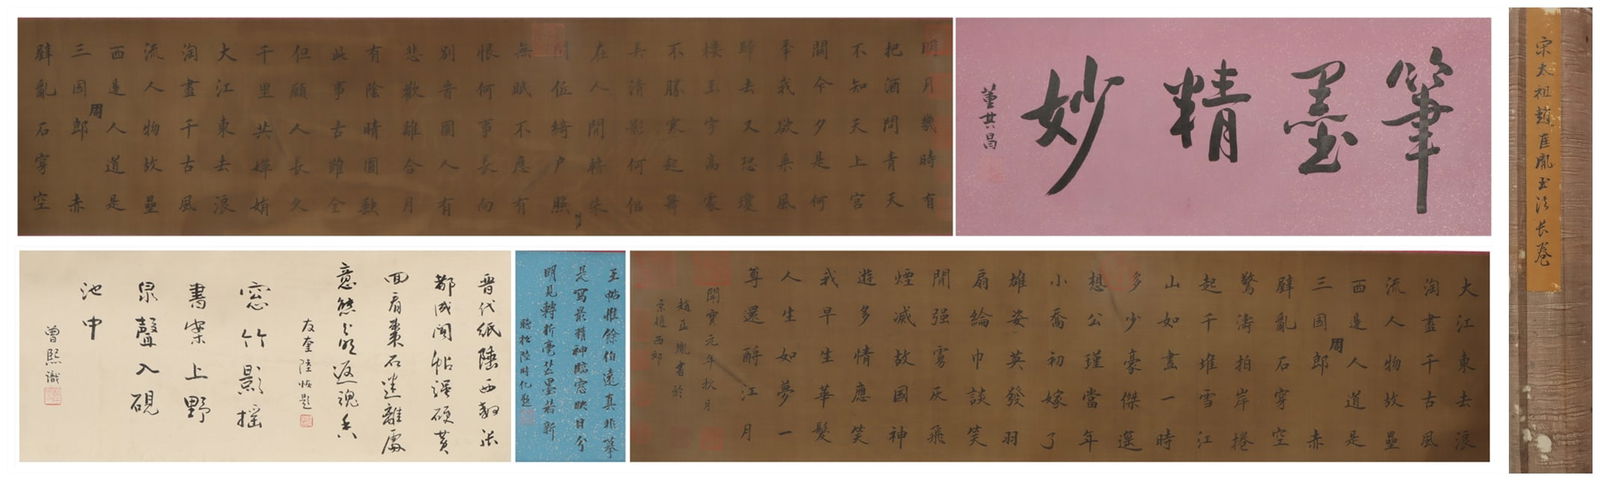 宋太祖趙匡胤書法長卷
筆墨精妙
董其昌
明月幾時有
把酒問青天
不知天上宮
闕今夕是何
年我欲乘風
歸去又恐瓊
樓玉宇高處
不勝寒起舞
弄清影何似
在人間轉朱
閣低綺户照
無眠不應有
恨何事長向
別時圓人有
悲歡離合月
有陰晴圓缺
此事古難全
但願人長久
千里共嬋娟
大江東去浪
淘盡千古風
流人物故壘
西邊人道是
三國周郎赤
壁亂石穿空
大江東去浪
淘盡千古風
流人物故壘
西邊人道是
三國周郎赤
壁亂石穿空
驚濤拍岸捲
起千堆雪江
山如畫一時
多少豪傑遥
想公瑾當年
小喬初嫁了
雄姿英發羽
扇綸巾談笑
間强虜灰飛
煙滅故國神
遊多情應笑
我早生華髮
人生如夢一
尊還酹江月
開寶元年秋月
趙匡胤書於
西郊
王帖惟餘伯遠真非摹
是寫最精神臨窓映日分
明見轉折毫芒墨若新
陸時化題
晉代紙
都成閣帖誤硬黃
面看棗石迷離處
意態分明返魂香
友奎陸恢題
窓竹影摇
書案上野
泉聲入硯
池中
曾熙識